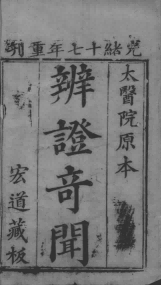 光緒十七年重刊
太醫院原本
辨證奇聞
宏道藏板